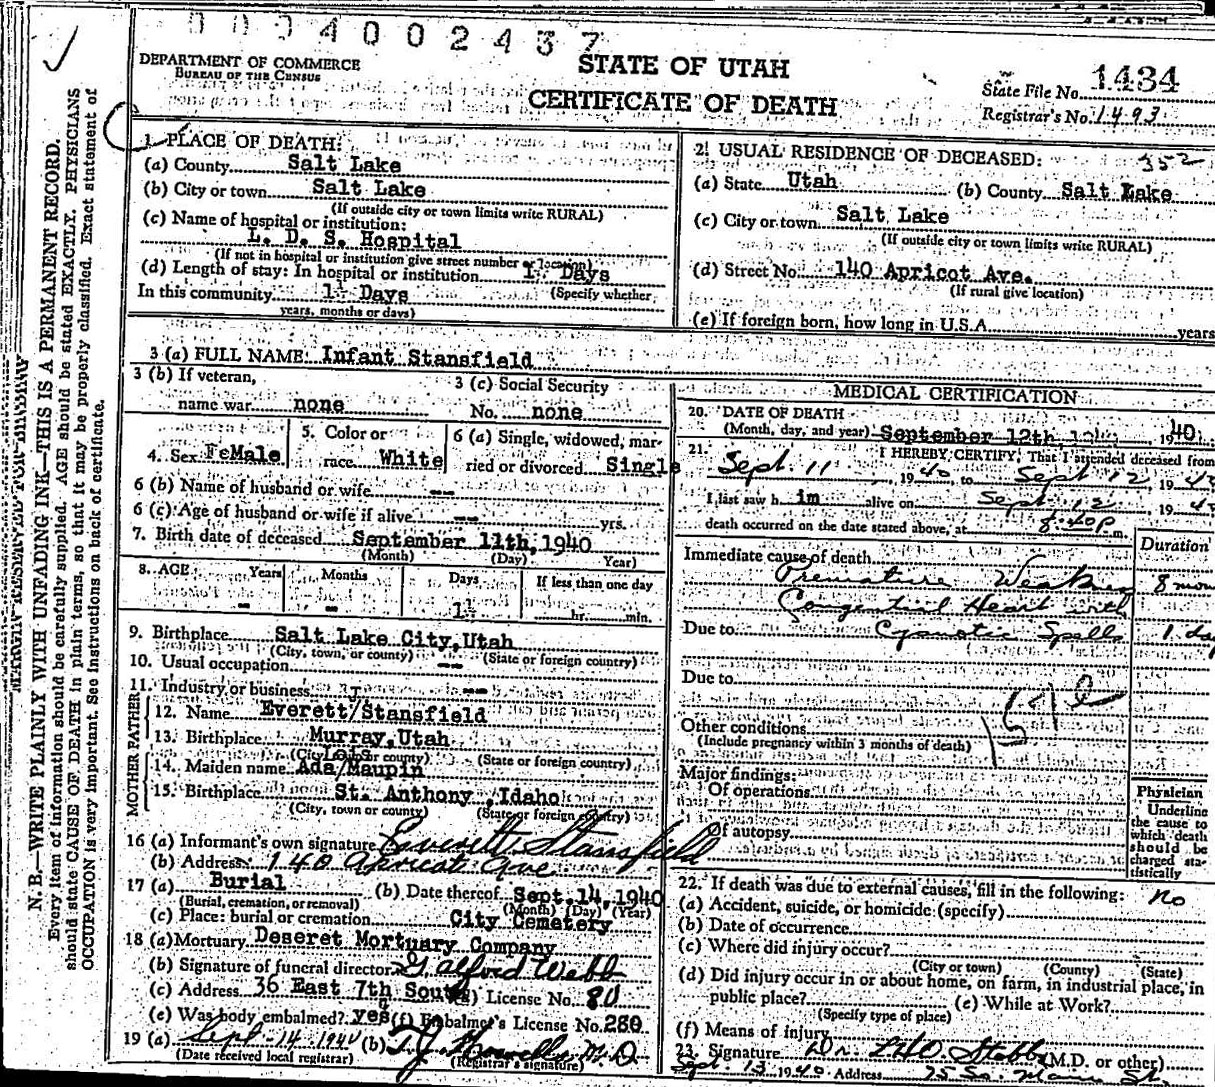 0004002437
DEPARTMENT OF COMMERCE
BUREAU OF THE CENSUS
STATE OF UTAH
CERTIFICATE OF DEATH
State File No. 1434
Registrar's No. 1493
N. B.—WRITE PLAINLY WITH UNFADING INK—THIS IS A PERMANENT RECORD.
Every item of information should be carefully supplied. AGE should be stated EXACTLY. PHYSICIANS
should state CAUSE OF DEATH in plain terms, so that it may be properly classified. Exact statement of
OCCUPATION is very important. See instructions on back of certificate.
1. PLACE OF DEATH:
(a) County Salt Lake
(b) City or town Salt Lake
(If outside city or town limits write RURAL)
(c) Name of hospital or institution:
L. D. S. Hospital
(If not in hospital or institution give street number or location)
(d) Length of stay: In hospital or institution Days
(Specify whether
In this community 1½ Days
years, months or days)
2. USUAL RESIDENCE OF DECEASED: 352
(a) State Utah (b) County Salt Lake
(c) City or town Salt Lake
(If outside city or town limits write RURAL)
(d) Street No. 140 Apricot Ave.
(If rural give location)
(e) If foreign born, how long in U.S.A. years
3 (a) FULL NAME: Infant Stansfield
3 (b) If veteran,
name war none
3 (c) Social Security
No. none
4. Sex FeMale
5. Color or
race White
6 (a) Single, widowed, mar-
ried or divorced Single
6 (b) Name of husband or wife --
6 (c) Age of husband or wife if alive -- yrs.
7. Birth date of deceased September 11th, 1940
(Month) (Day) Year)
8. AGE Years Months Days If less than one day
- - 1½ hr. min.
9. Birthplace Salt Lake City, Utah
(City, town, or county) (State or foreign country)
10. Usual occupation --
11. Industry or business --
FATHER
12. Name Everett J Stansfield
13. Birthplace Murray, Utah
(City, town or county) (State or foreign country)
MOTHER
14. Maiden name Ada/Lois Maupin
15. Birthplace St. Anthony, Idaho
(City, town or county) (State or foreign country)
16 (a) Informant's own signature Everett Stansfield
(b) Address 140 Apricot Ave
17 (a) Burial (b) Date thereof Sept. 14, 1940
(Burial, cremation, or removal) (Month) (Day) (Year)
(c) Place: burial or cremation City Cemetery
18 (a) Mortuary Deseret Mortuary Company
(b) Signature of funeral director G Alford Webb
(c) Address 36 East 7th South License No. 80
(e) Was body embalmed? yes (f) Embalmer's License No. 280
19 (a) Sept. 14 1940 (b) T.J. Howells M.D
(Date received local registrar) (Registrar's signature)
MEDICAL CERTIFICATION
20. DATE OF DEATH
(Month, day, and year) September 12th, 1940
21. I HEREBY CERTIFY, That I attended deceased from
Sept. 11, 1940 to Sept 12, 19
I last saw h im alive on Sept. 12 19
death occurred on the date stated above, at 8:40 P. m.
Duration
Immediate cause of death
Premature Weakness 8 mon
Congenital Heart with
Due to Cyanotic Spells 1 day
Due to
Other conditions
(Include pregnancy within 3 months of death)
Major findings:
Of operations
Of autopsy
Physician
Underline
the cause to
which death
should be
charged sta-
tistically
22. If death was due to external causes, fill in the following: no
(a) Accident, suicide, or homicide (specify)
(b) Date of occurrence
(c) Where did injury occur?
(City or town) (County) (State)
(d) Did injury occur in or about home, on farm, in industrial place, in
public place? (e) While at Work?
(Specify type of place)
(f) Means of injury
23. Signature Dr. LHO Stobbe (M.D. or other)
Sept. 13 1940 Address 75 So. Main St.